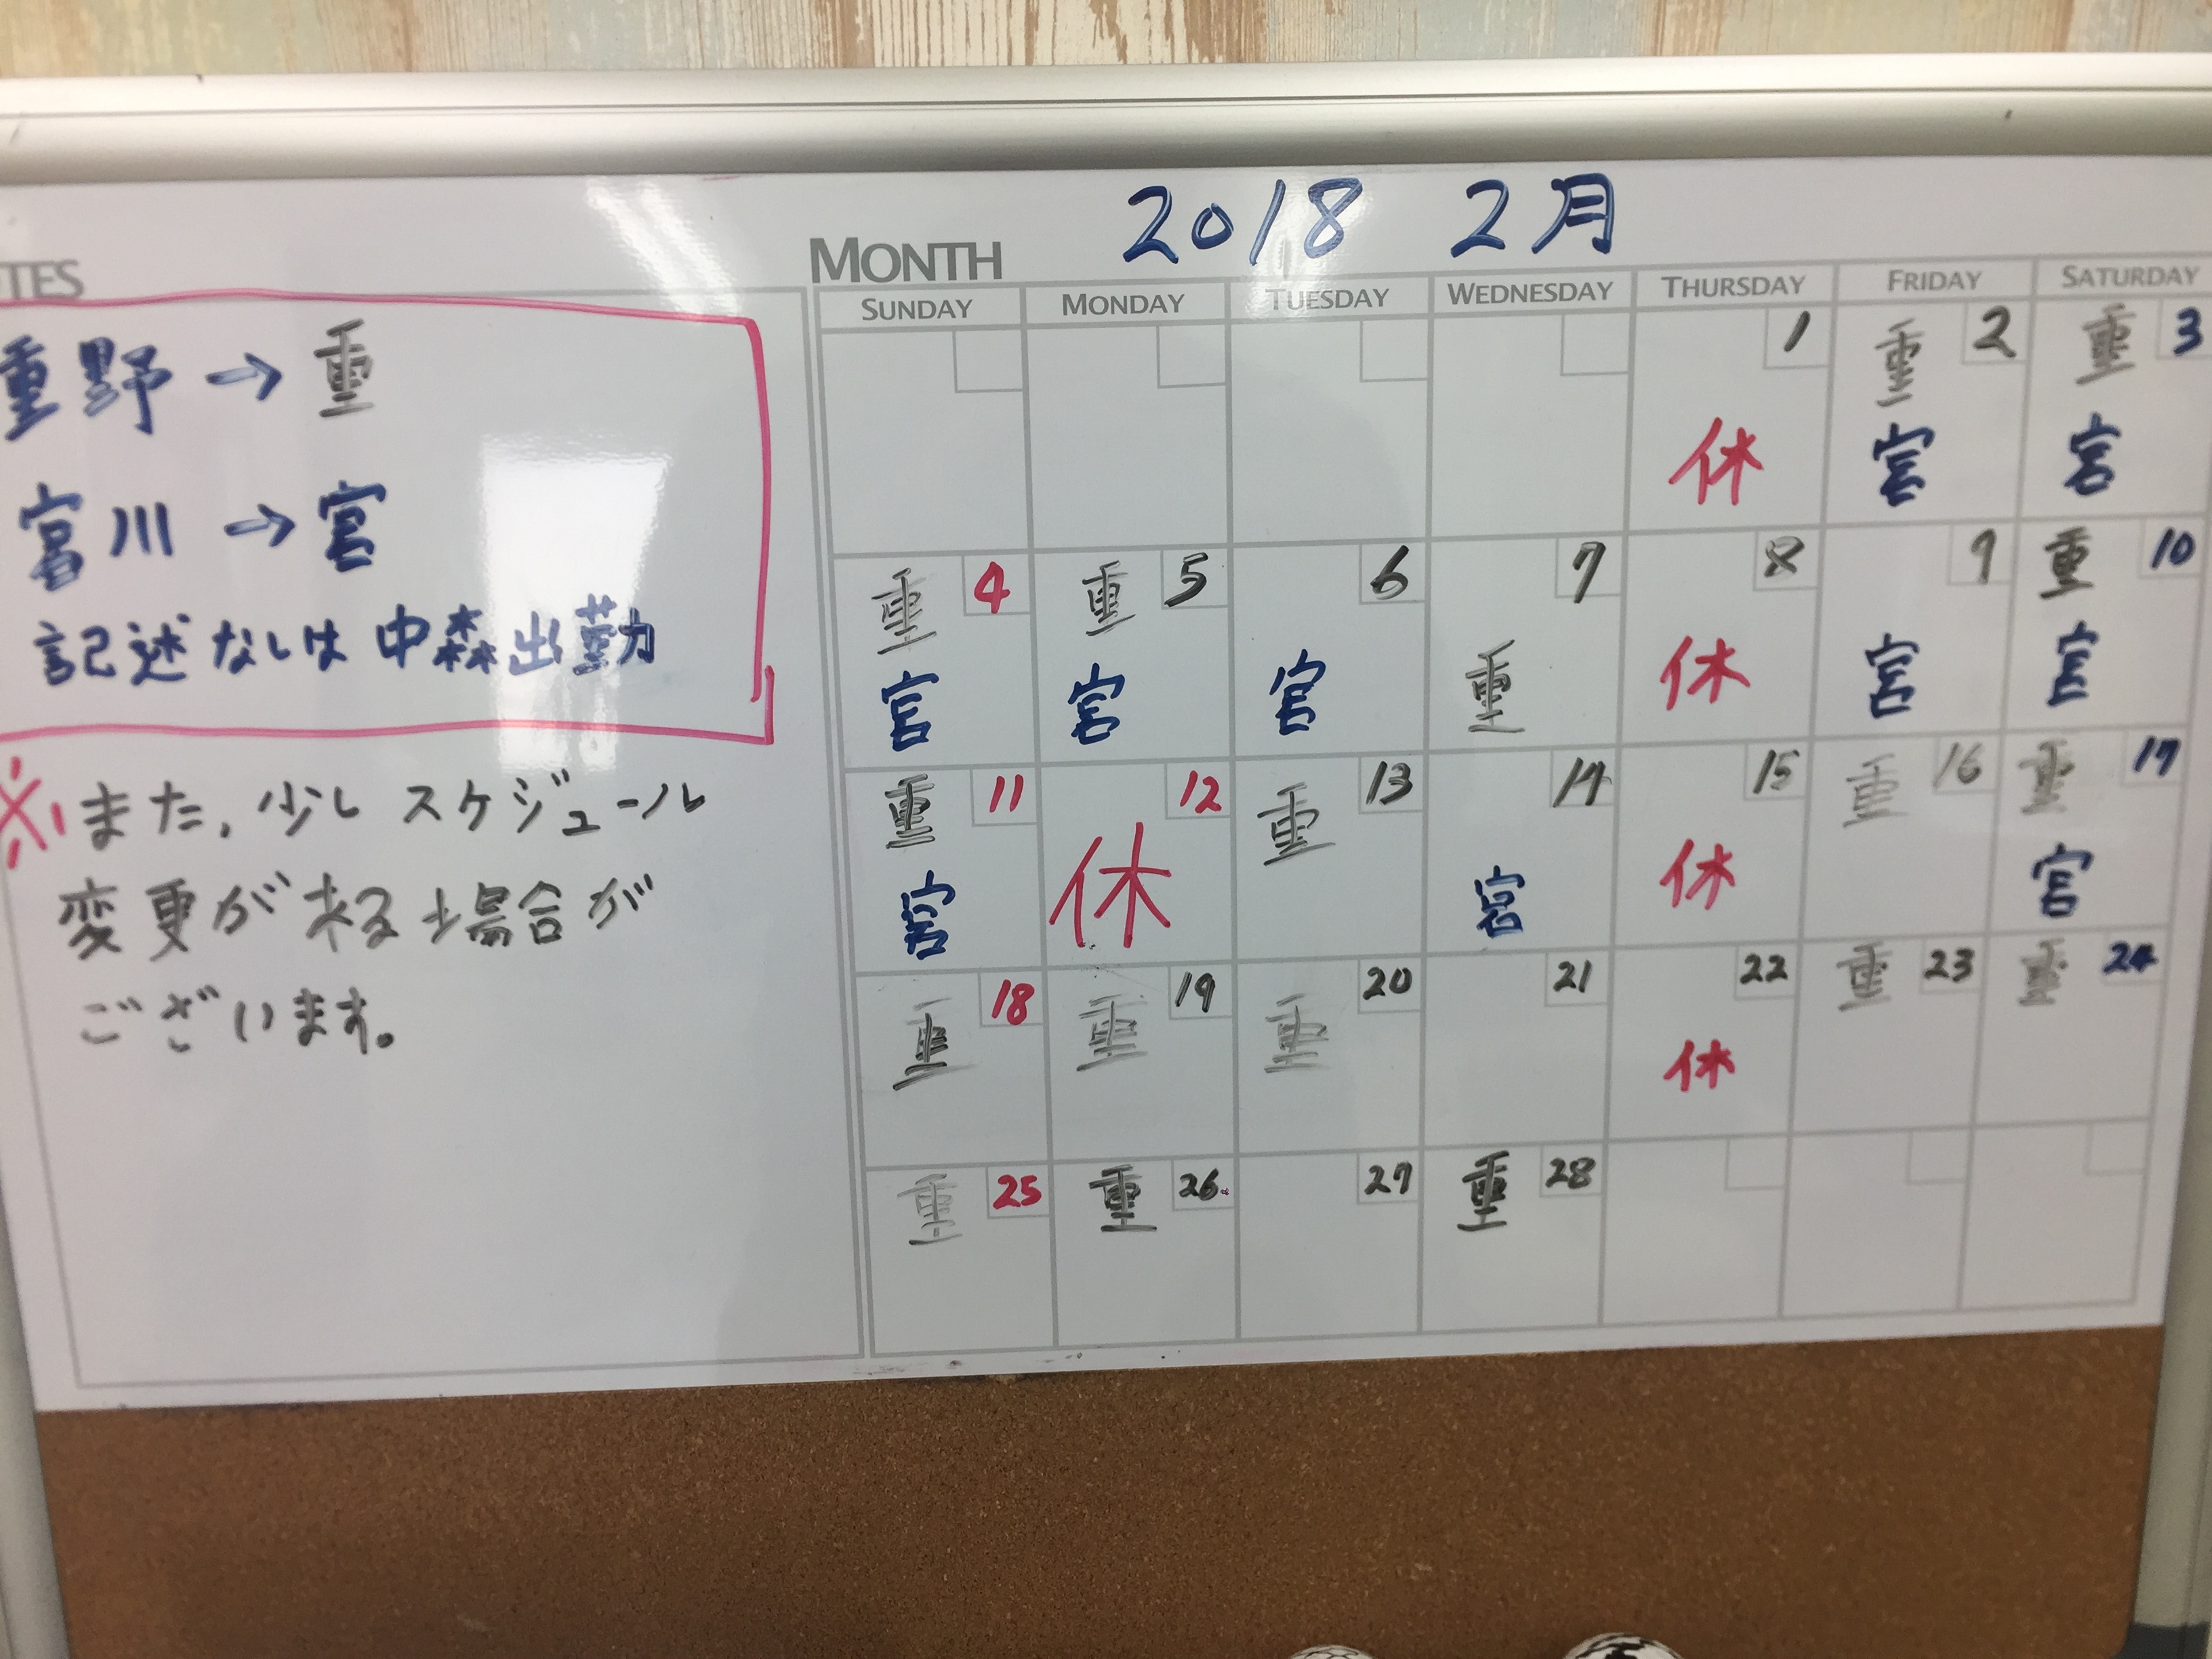 TES
重野→重
宮川→宮
記述なしは中森出勤
※また、少しスケジュール
変更が来る場合が
ございます。
MONTH 2018 2月
SUNDAY MONDAY TUESDAY WEDNESDAY THURSDAY FRIDAY SATURDAY
1 2 3
重 重
休 宮 宮
4 5 6 7 8 9 10
重 重 重
宮 宮 宮 重 休 宮 宮
11 12 13 14 15 16 17
重 重 重 重
宮 休 宮 休 宮
18 19 20 21 22 23 24
重 重 重 重 重
休
25 26 27 28
重 重 重